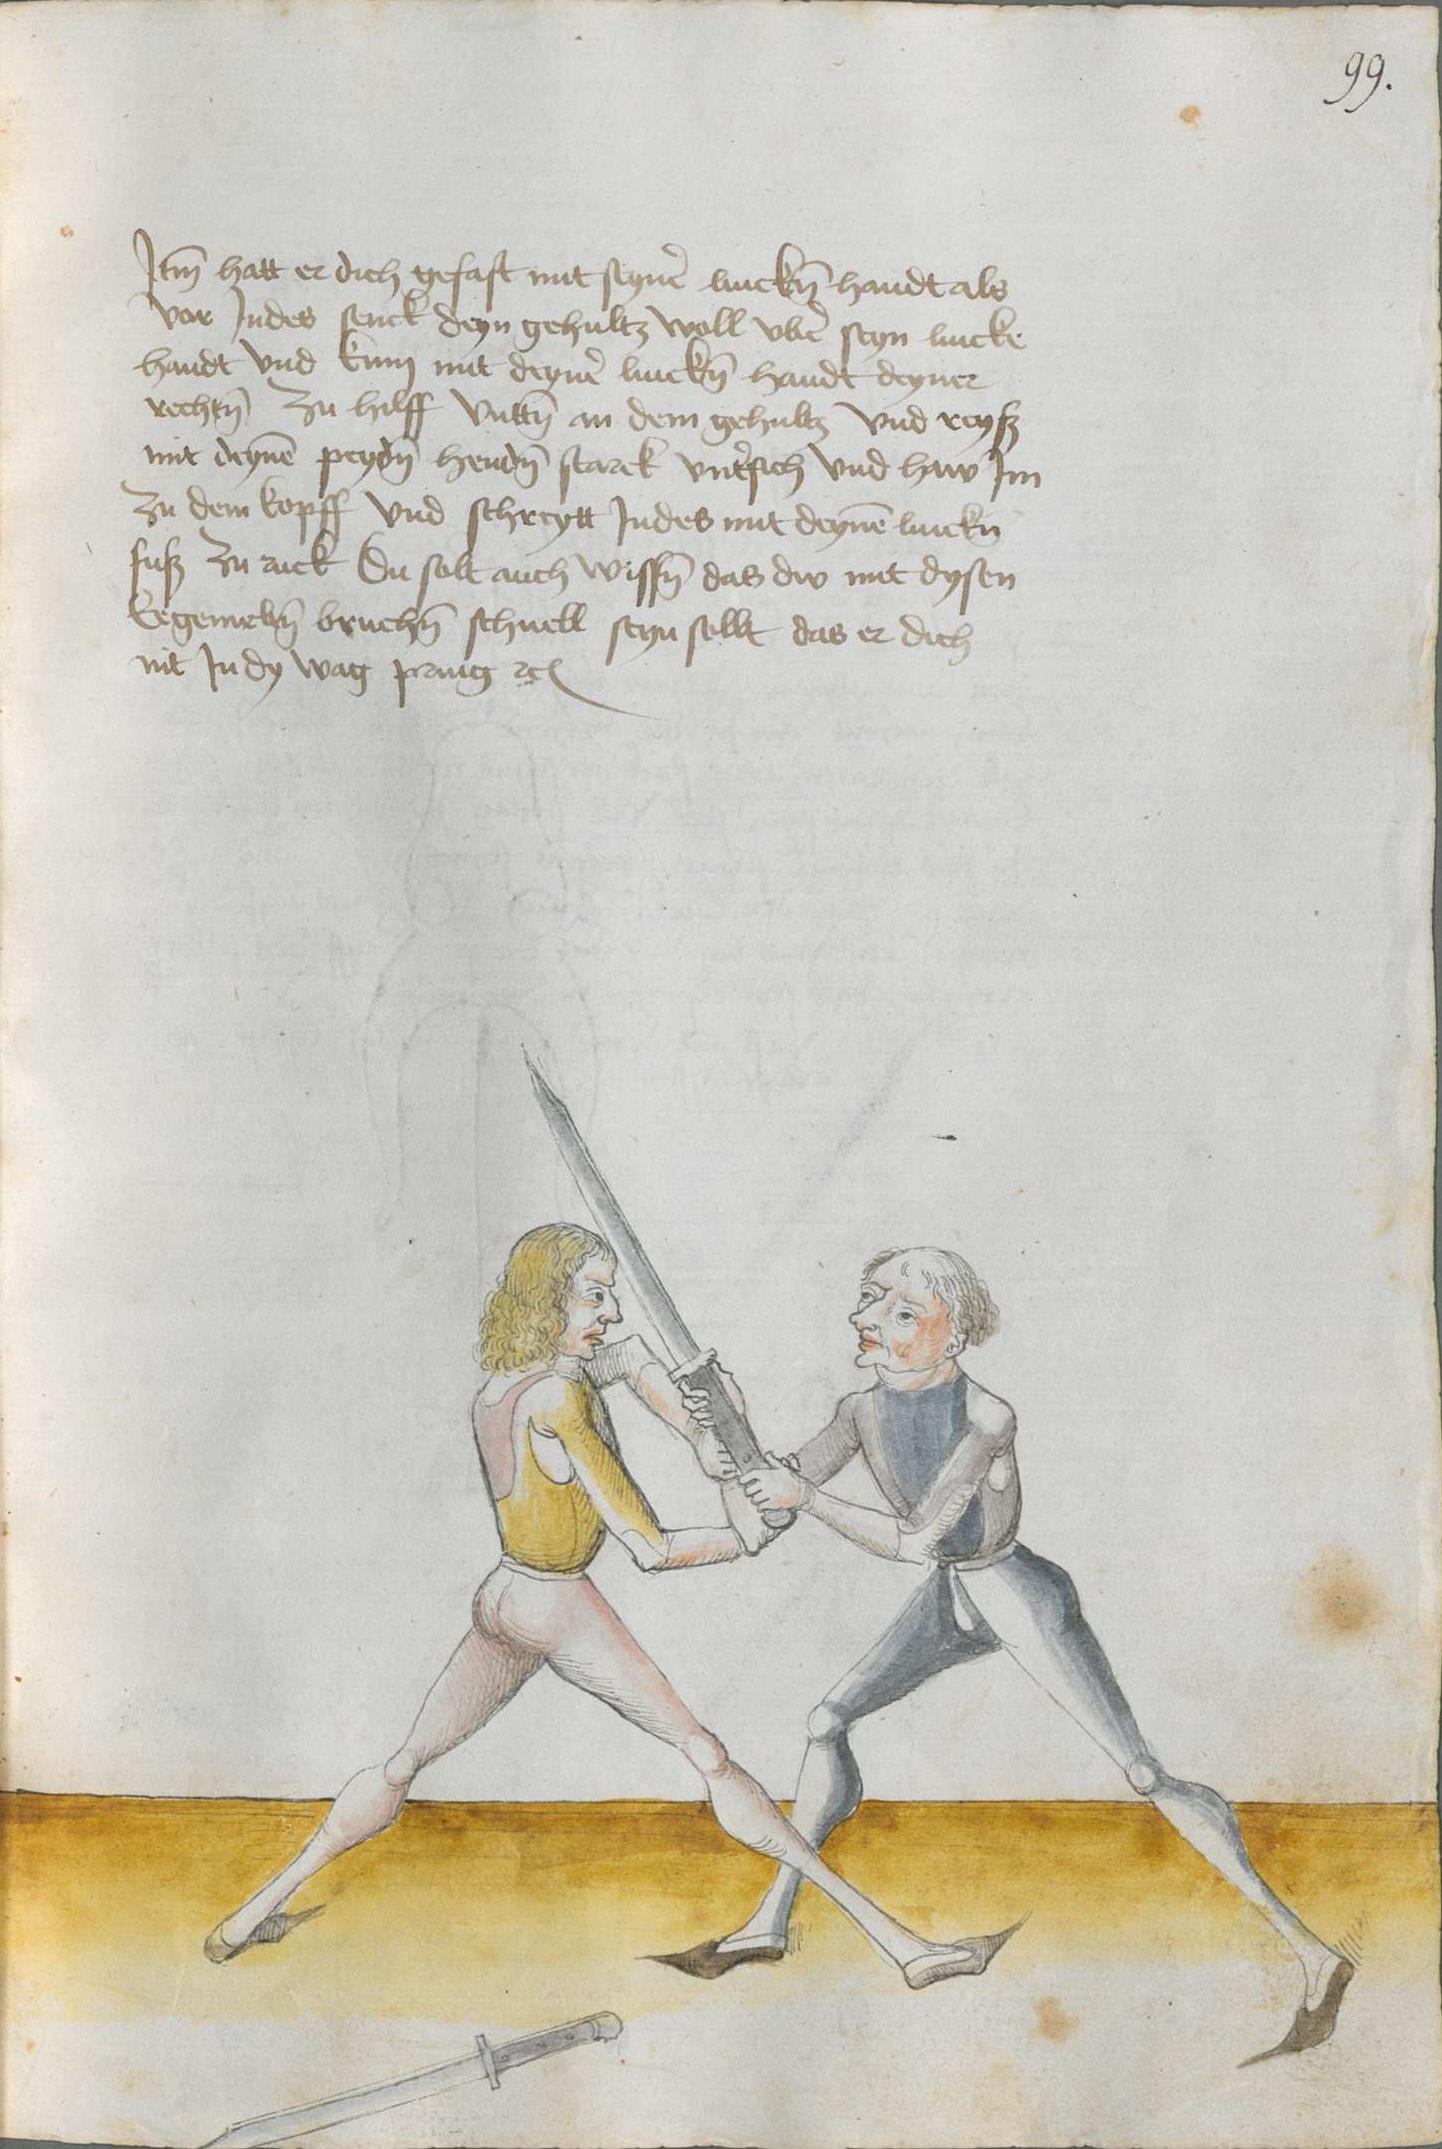 99.
Itm̄ hatt er dich gefast mit seyne᷑ linckn̄ handt als
vor Indes senck deyn gehultz woll vbe᷑ seyn lincke
handt vnd kum mit deyne᷑ linckn̄ handt deyner
rechtn̄ zu hilff vnttn̄ an dem gehultz vnd reysz
mit deynē peydn̄ hendn̄ starck vnt᷑sich vnd haw Im
zu dem kopff vnd schreytt Indes mit deynē linckn
fusz zu ruck Du solt auch wissn̄ das dw mit dysen
bruchn̄ schnell seyn sollt das er dich
nit In dy wag pring